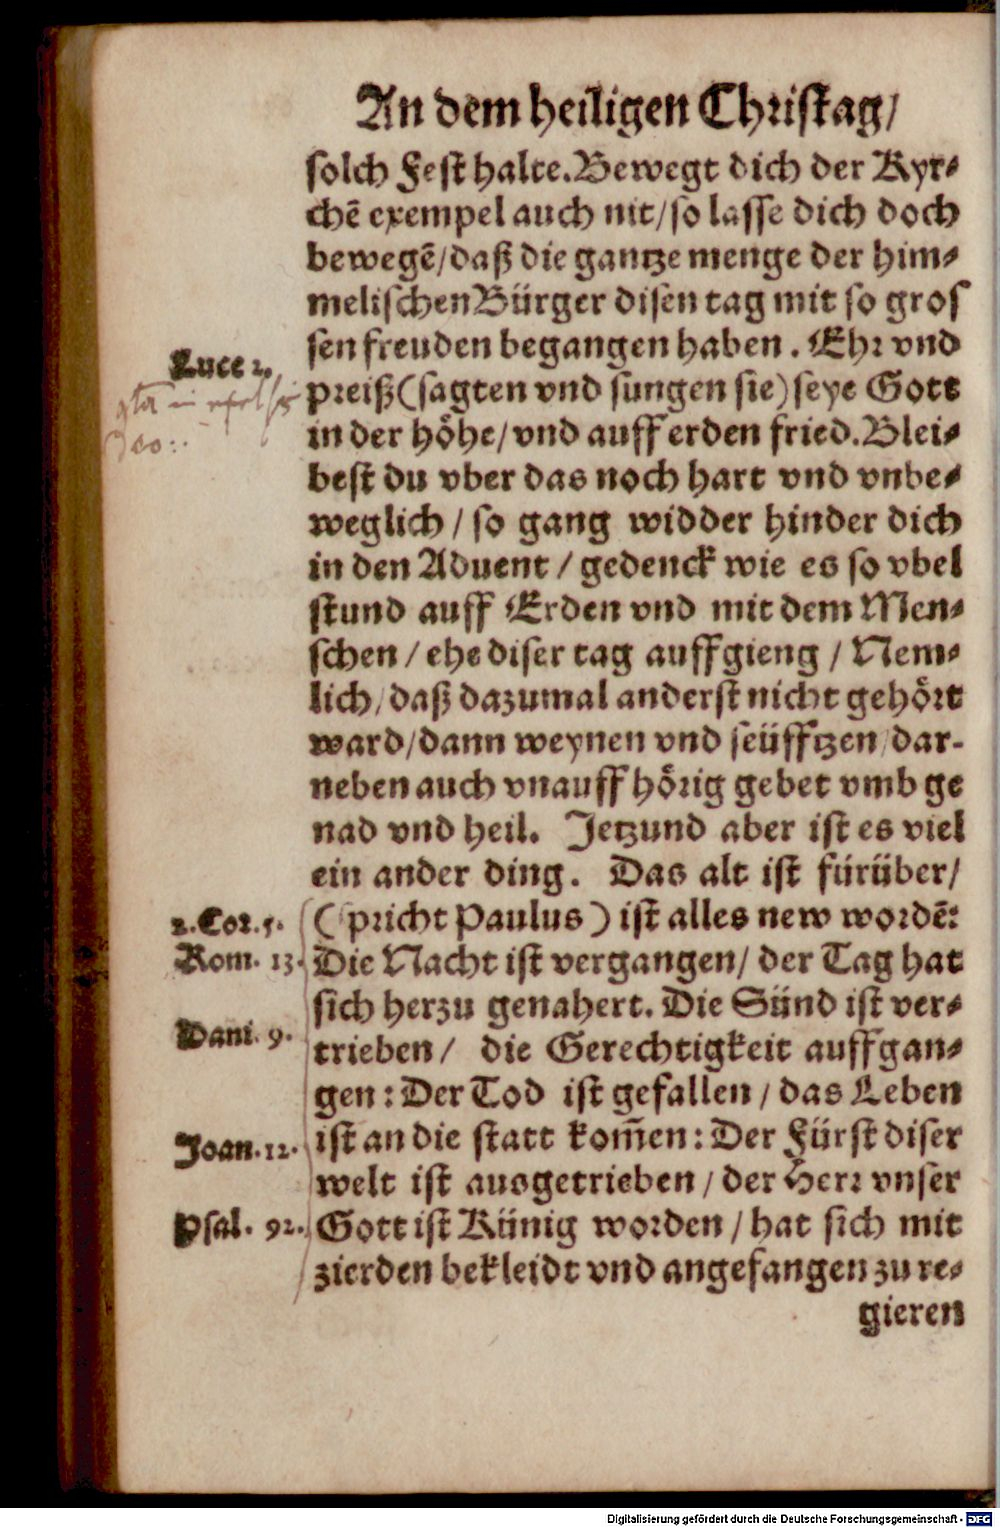 An dem heiligen Christag/
solch Fest halte. Bewegt dich der Kyr-
chē exempel auch nit/ so lasse dich doch
bewegē/ daß die gantze menge der him-
melischen Bürger disen tag mit so gros
sen freuden begangen haben. Ehr vnd
Luce 2.
preiß (sagten vnd sungen sie) seye Gott
gl̄a in excelsis
Deo:
in der höhe/ vnd auff erden fried. Blei-
best du vber das noch hart vnd vnbe-
weglich/ so gang widder hinder dich
in den Aduent/ gedenck wie es so vbel
stund auff Erden vnd mit dem Men-
schen/ ehe diser tag auffgieng/ Nem-
lich/ daß dazumal anderst nicht gehört
ward/ dann weynen vnd seüfftzen/ dar-
neben auch vnauffhörig gebet vmb ge
nad vnd heil. Jetzund aber ist es viel
ein ander ding. Das alt ist fürüber/
2. Cor. 5.
(spricht Paulus) ist alles new wordē:
Rom. 13.
Die Nacht ist vergangen/ der Tag hat
sich herzu genahert. Die Sünd ist ver-
Dani. 9.
trieben/ die Gerechtigkeit auffgan-
gen: Der Tod ist gefallen/ das Leben
Joan. 12.
ist an die statt kom̄en: Der Fürst diser
welt ist ausgetrieben/ der Herr vnser
Psal. 92.
Gott ist Künig worden/ hat sich mit
zierden bekleidt vnd angefangen zu re-
gieren
Digitalisierung gefördert durch die Deutsche Forschungsgemeinschaft - DFG